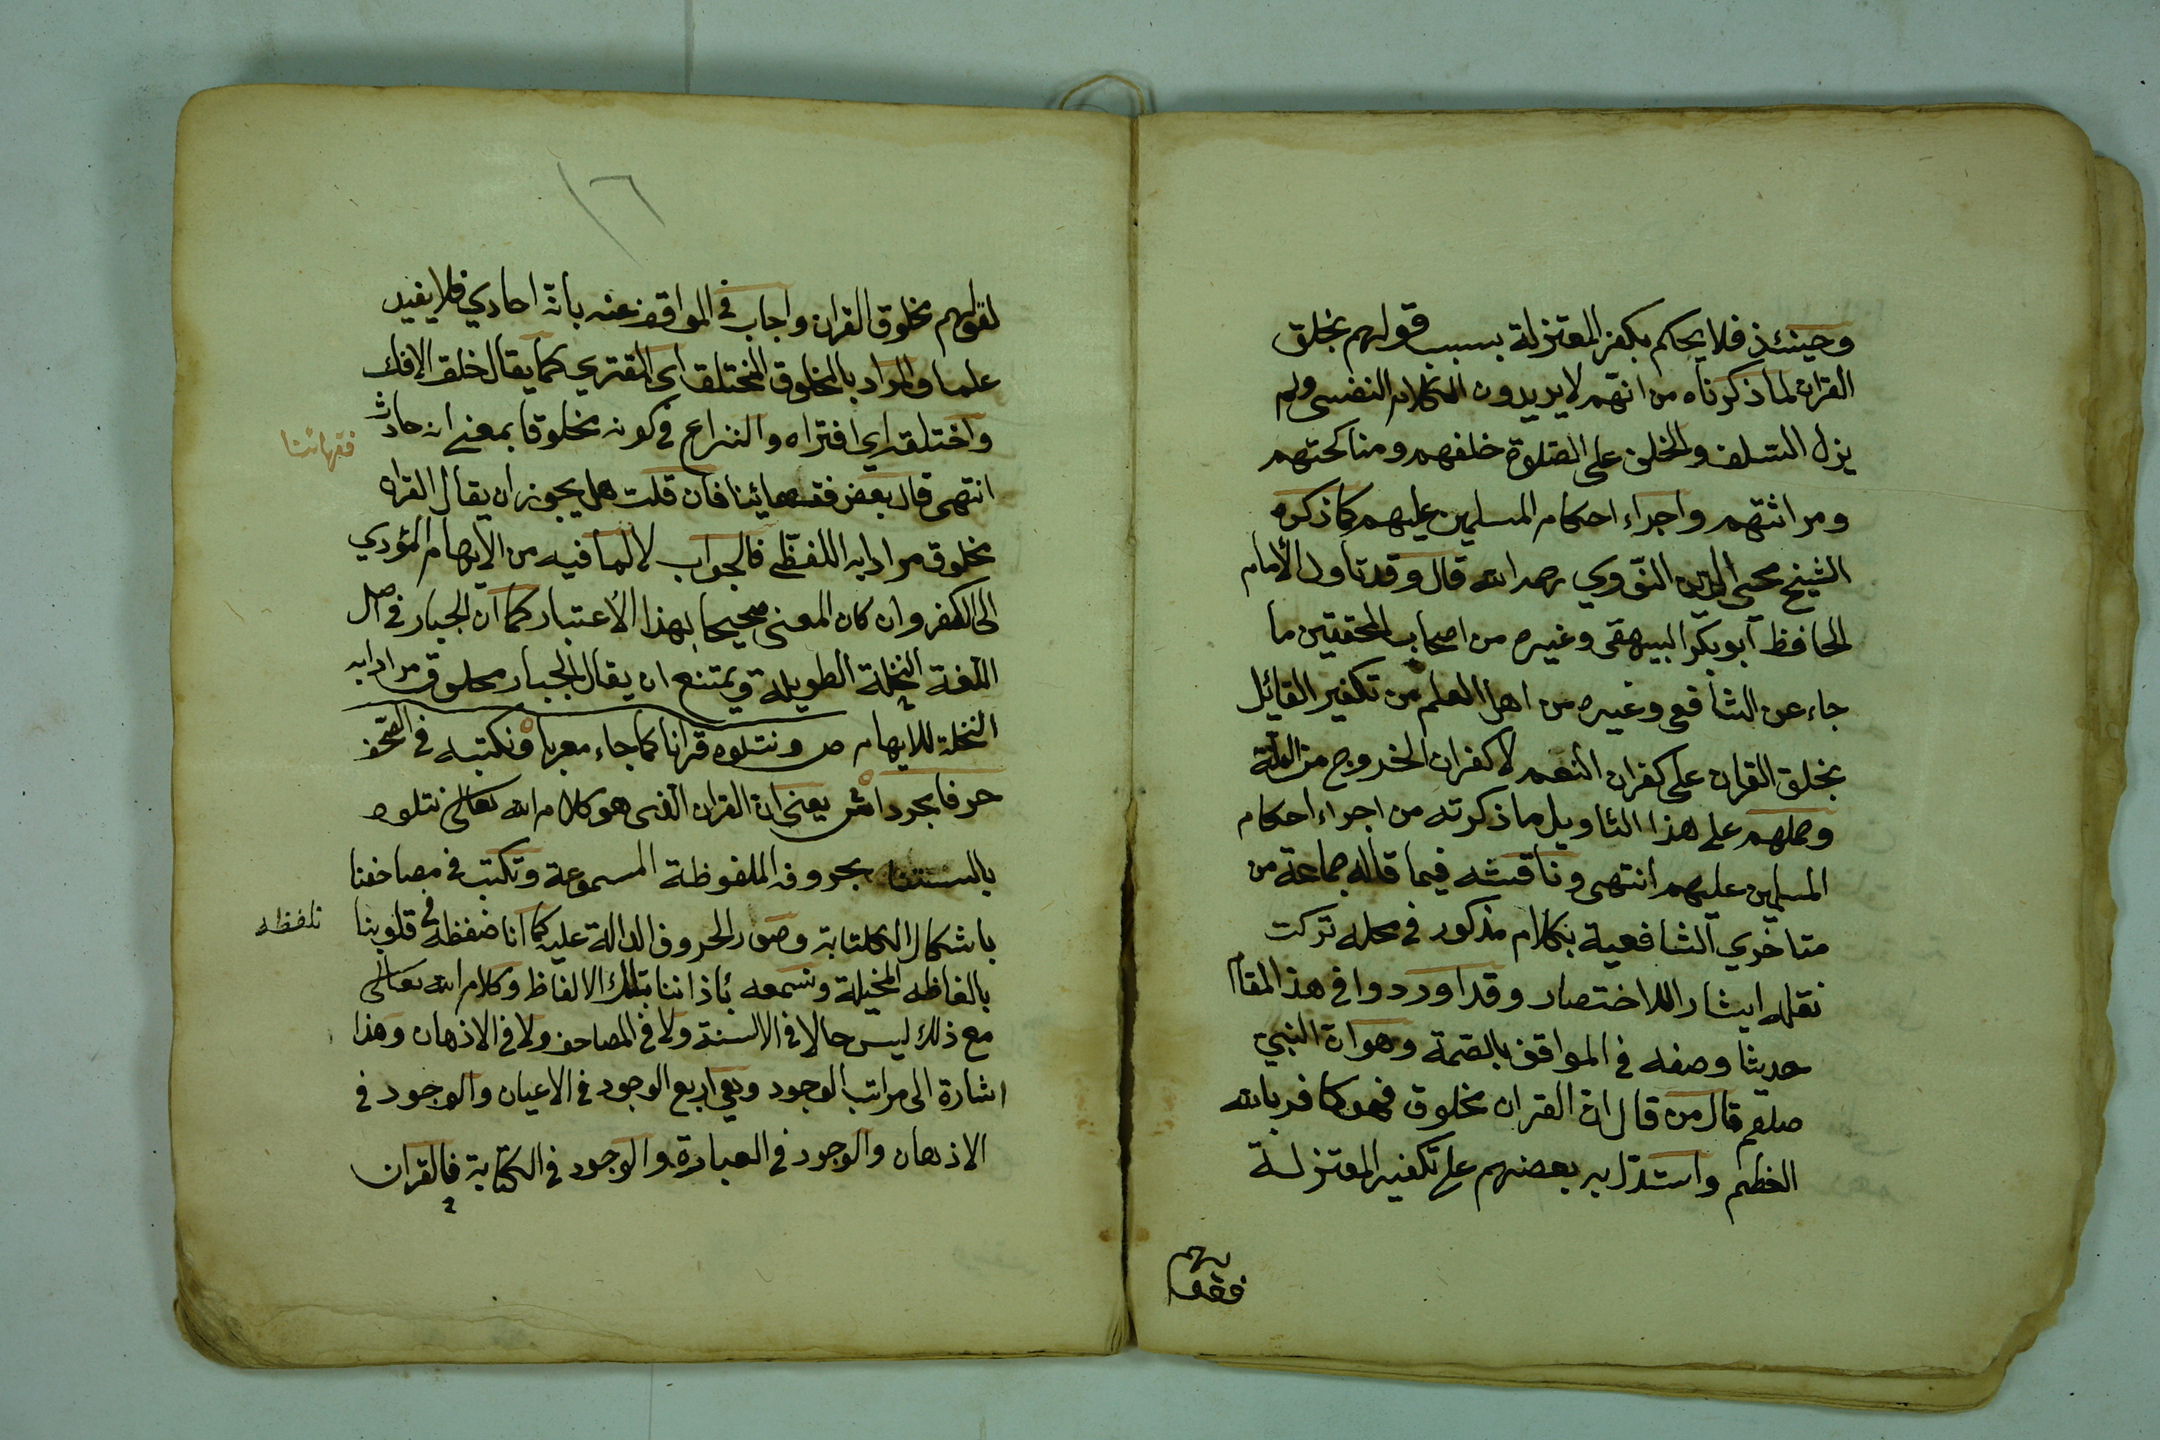 وحينئذ فلا يحكم بكفر المعتزلة بسبب قولهم بخلق
القران لما ذكرناه من انهم لا يريدون الكلام النفسي ولم
يزل السلف والخلف على الصلوة خلفهم ومناكحتهم
وموارثتهم واجراء احكام المسلمين عليهم كما ذكره
الشيخ محيي الدين النووي رحمه الله قال وقد تاول الامام
الحافظ ابو بكر البيهقي وغيره من اصحاب المحققين ما
جاء عن الشافعي وغيره من اهل العلم من تكفير القائل
بخلق القران على كفران النعم لا كفران الخروج من الملة
وحملهم على هذا التاويل ما ذكرته من اجراء احكام
المسلمين عليهم انتهى وناقشه فيما قاله جماعة من
متاخري الشافعية بكلام مذكور في محله تركت
نقله ايثارا للاختصار وقد اوردوا في هذا المقام
حديثا وصفه في المواقف بالصحة وهو ان النبي
صلعم قال من قال ان القران مخلوق فهو كافر بالله
العظيم واستدل به بعضهم على تكفير المعتزلة
١٦
لقولهم مخلوق القران واجاب في المواقف عنه بانه احادي فلا يفيد
علما والمراد بالمخلوق المختلق اي المفتري كما يقال خلق الافك
واختلقه اي افتراه والنزاع في كونه مخلوقا بمعنى انه حادث
فقهائنا
انتهى قال بعض فقهائنا فان قلت هل يجوز ان يقال القران
مخلوق مرادا به اللفظي فالجواب لا لما فيه من الايهام المؤدي
الى الكفر وان كان المعنى صحيحا بهذا الاعتبار كما ان الجبار في اصل
اللغة النخلة الطويلة ويمتنع ان يقال الجبار مخلوق مرادا به
النخلة للايهام ص ونتلوه قرانا كما جاء معربا ونكتبه في الصحف
حرفا مجردا ش يعني ان القران الذي هو كلام الله تعالى نتلوه
بالسنتنا بحروفه الملفوظة المسموعة وتكتب في مصاحفنا
باشكال الكتابة وصور الحروف الدالة عليه كما انا نحفظه في قلوبنا
بالفاظه المخيلة ونسمعه باذاننا بتلك الالفاظ وكلام الله تعالى
مع ذلك ليس حالا في الالسنة ولا في المصاحف ولا في الاذهان وهذا
اشارة الى مراتب الوجود وهي اربع الوجود في الاعيان والوجود في
الاذهان والوجود في العبارة والوجود في الكتابة فالقران